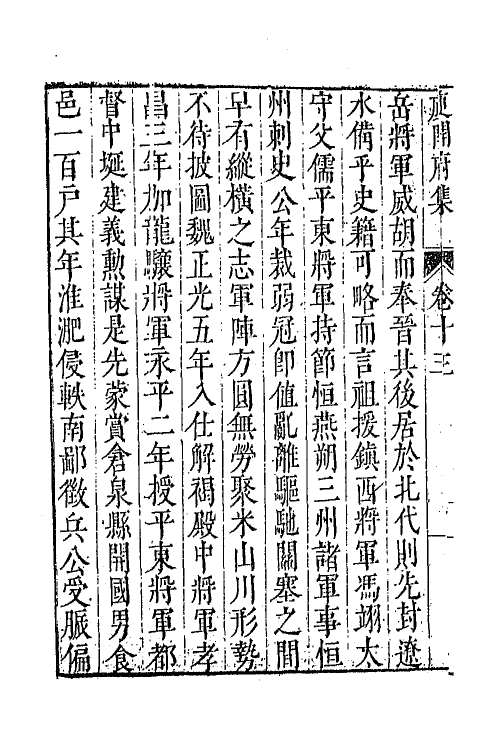 庾開府集 卷十三
岳將軍威胡而奉晉其後居於北代則先封遼
水備乎史籍可略而言祖援鎮西將軍馮翊太
守父儒平東將軍持節恒燕朔三州諸軍事恒
州刺史公年裁弱冠卽值亂離驅馳關塞之間
早有縱橫之志軍陣方圓無勞聚米山川形勢
不待披圖魏正光五年入仕解褐殿中將軍孝
昌三年加龍驤將軍永平二年授平東將軍都
督中挻建義勲謀是先蒙賞倉泉縣開國男食
邑一百戸其年淮淝侵軼南鄙徵兵公受脤偏